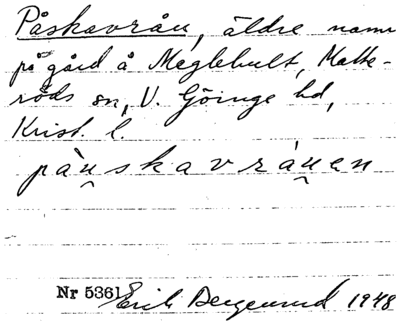 Påskavrån, äldre namn
på gård å Meglehult, Matte-
röds sn, V. Göinge hd,
Krist. l.
pàu̯skavráu̯en
Nr 5361 Erik Bergenrud 1948